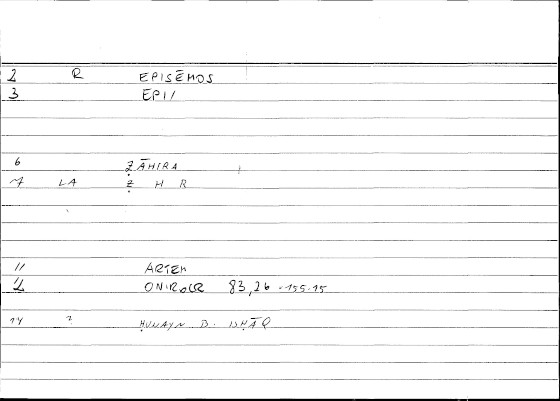 2 R EPISĒMOS
3 EPI/
6 ẒĀHIRA
7 LA Ẓ H R
11 ARTEM
12 ONIROCR 83,26 = 155.15
14 ? ḤUNAYN B. ISḤĀQ